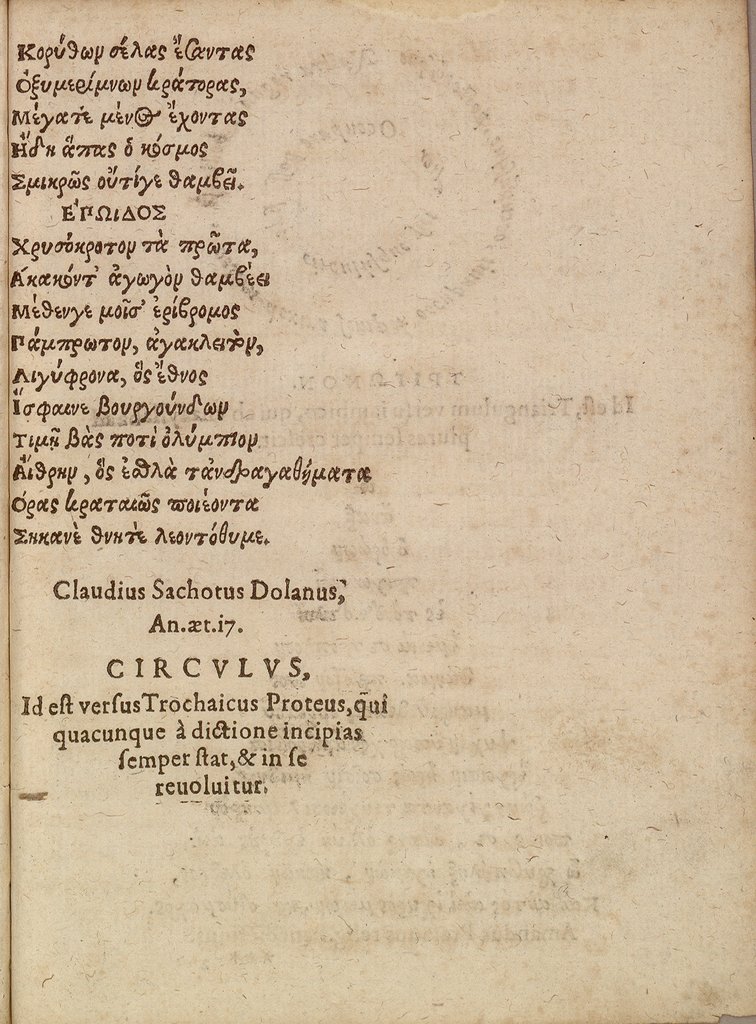 Κορύθων σέλας ἐξαντας
Ὀξυμερίμνων κράτορας,
Μέγατε μένος ἔχοντας
Ἤδη ἅπας ὁ κόσμος
Σμικρῶς οὔτίγε θαμβεῖ.
ΕΠΩΙΔΟΣ
Χρυσόκροτον τὰ πρῶτα,
Ἀκακόντ' ἀγωγὸν θαμβέει
Μέθενγε μοῖσ' ἐρίβρομος
Πάμπρωτον, ἀγακλειτὸν,
Λιγύφρονα, ὃς ἔθνος
Ἴσφαινε βουργούνδων
Τιμῇ βὰς ποτὶ ὀλύμπιον
Αἴθρην, ὃς ἐσθλὰ τἀνδραγαθήματα
Ὁρᾷς κραταιῶς ποιέοντα
Σηκανὲ θνητὲ λεοντόθυμε.
Claudius Sachotus Dolanus,
An.æt.i7.
CIRCVLVS,
Id est versus Trochaicus Proteus, qui
quacunque à dictione incipias
semper stat, & in se
reuoluitur.